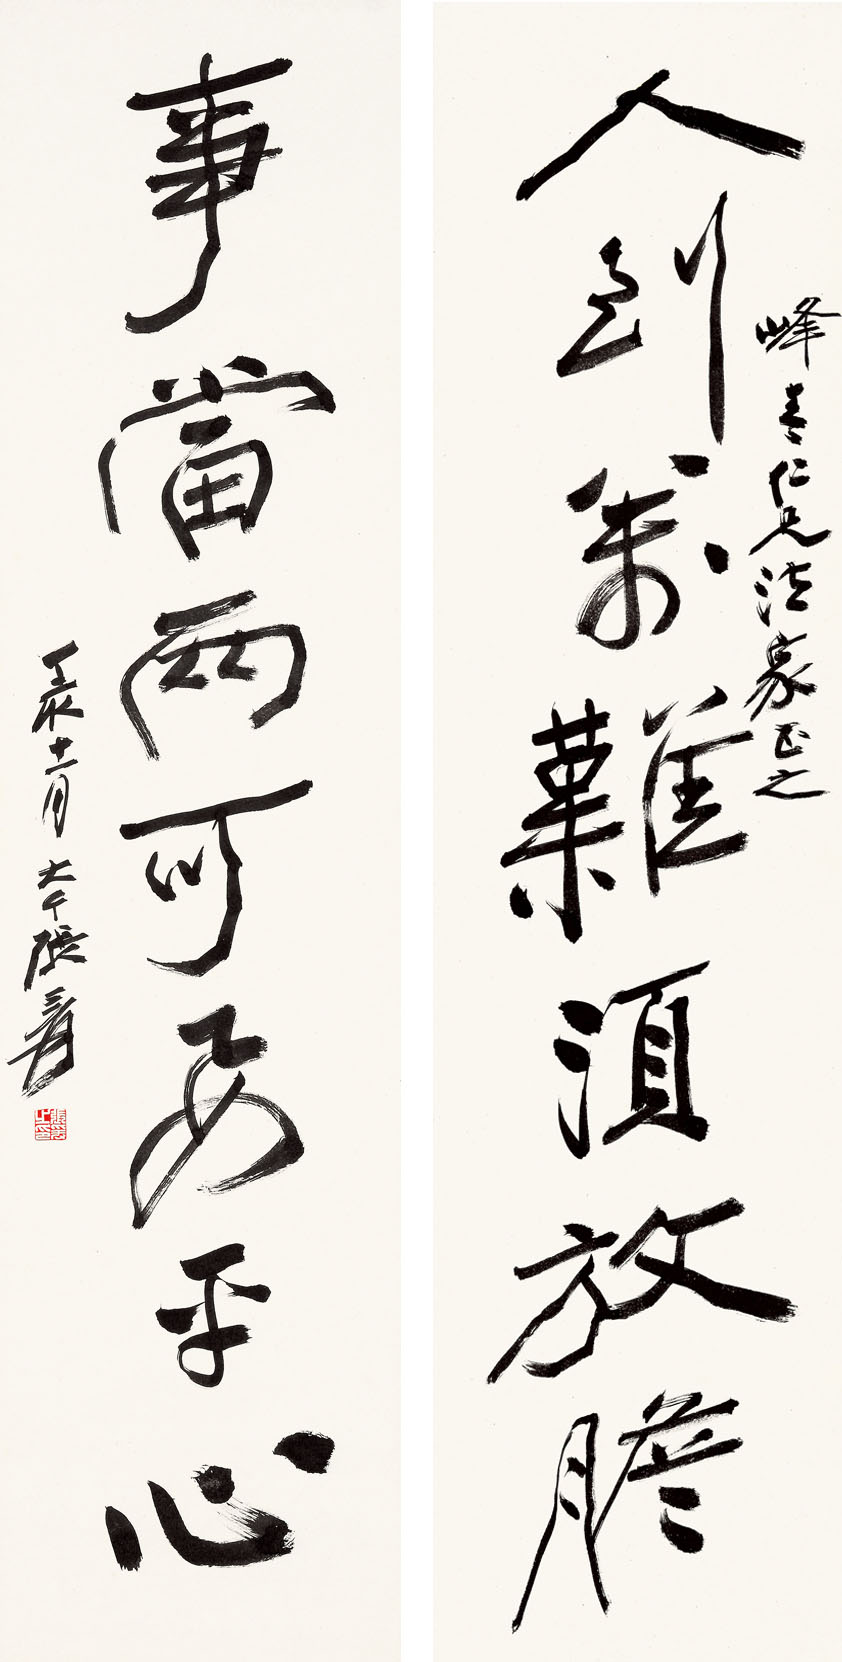 人到萬難須放膽
峰春仁兄法家正之
事當兩可要平心
壬辰十一月 大千張爰
張爰之印